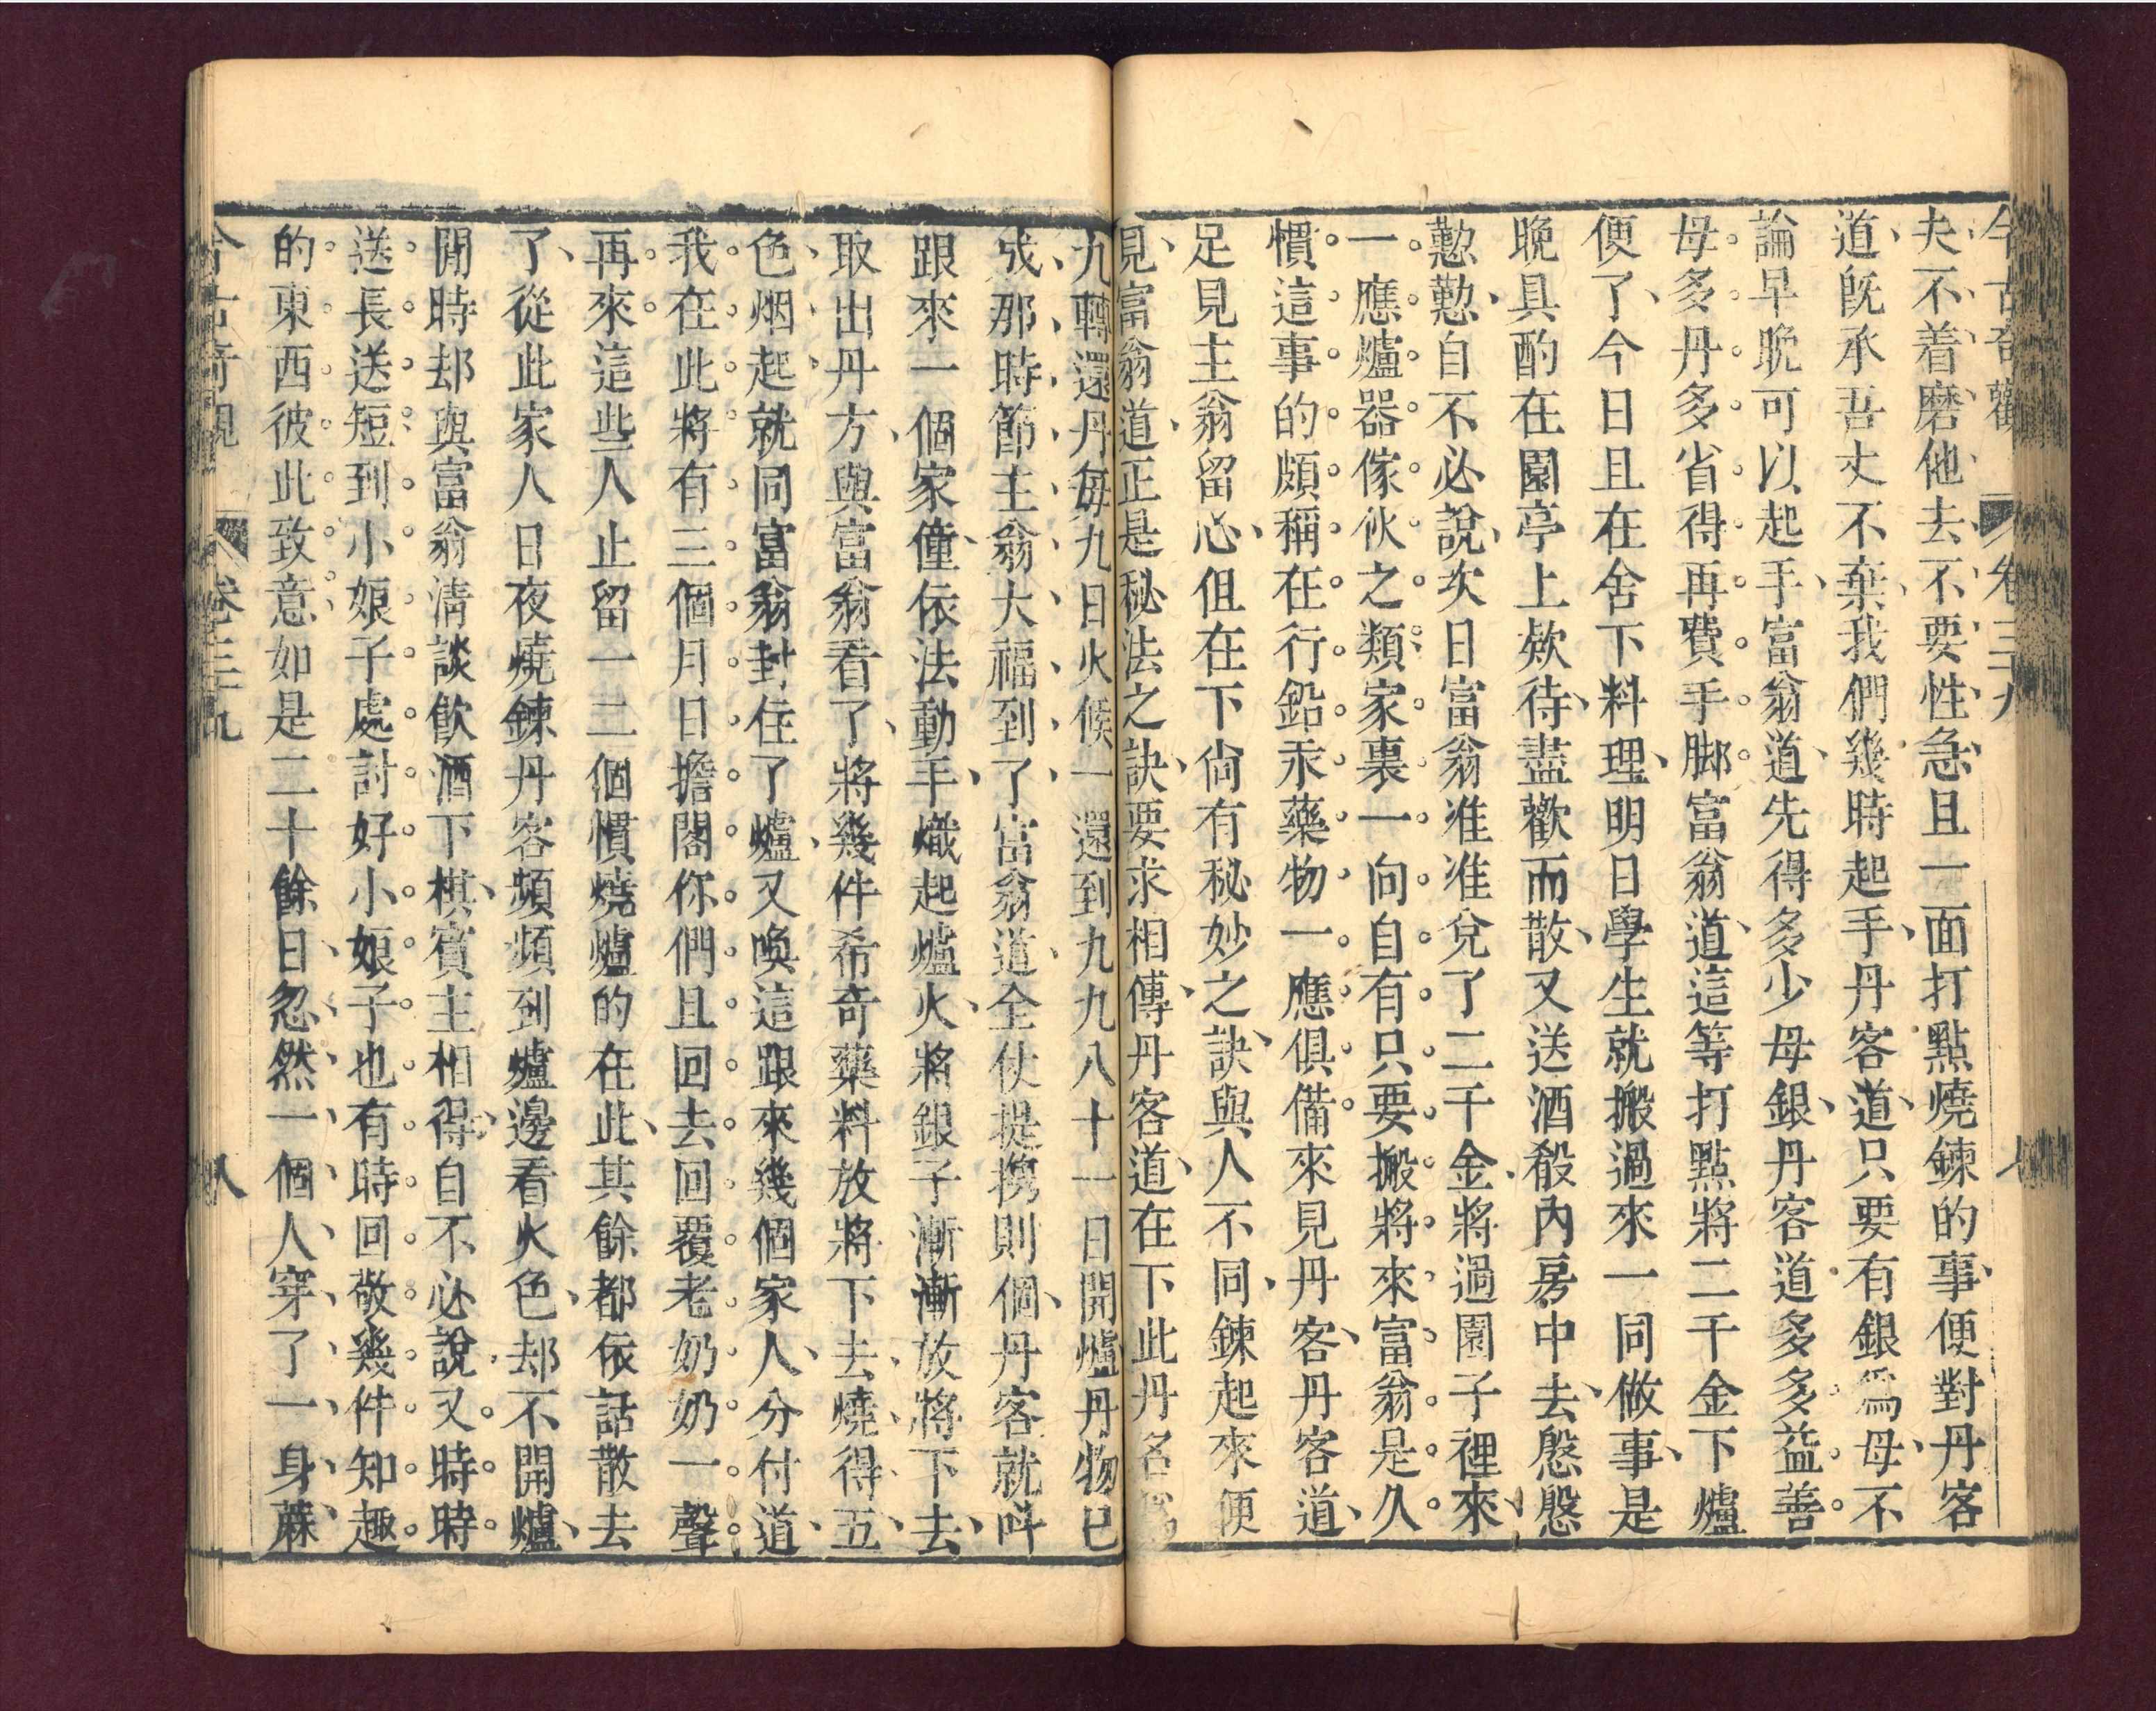 今古奇觀 卷三十九 七
夫不着磨他去不要性急且一面打點燒鍊的事便對丹客
道旣承吾丈不棄我們幾時起手丹客道只要有銀爲母不
論早晚可以起手富翁道先得多少母銀丹客道多多益善
母多丹多省得再費手脚富翁道這等打點將二千金下爐
便了今日且在舍下料理明日學生就搬過來一同做事是
晚具酌在園亭上欵待盡歡而散又送酒殽內房中去慇慇
懃懃自不必說次日富翁准准兌了二千金將過園子裡來
一應爐器傢伙之類家裏一向自有只要搬將來富翁是久
慣這事的頗稱在行鉛汞藥物一應俱備來見丹客丹客道
足見主翁留心但在下尙有秘妙之訣與人不同鍊起來便
見富翁道正是秘法之訣要求相傳丹客道在下此丹名爲
九轉還丹每九日火候一還到九九八十一日開爐丹物已
成那時節主翁大福到了富翁道全仗提携則個丹客就呌
跟來一個家僮依法動手熾起爐火將銀子漸漸放將下去
取出丹方與富翁看了將幾件希奇藥料放將下去燒得五
色烟起就同富翁封住了爐又喚這跟來幾個家人分付道
我在此將有三個月日擔閣你們且回去回覆老奶奶一聲
再來這些人止留一二個慣燒爐的在此其餘都依話散去
了從此家人日夜燒鍊丹客頻頻到爐邊看火色却不開爐
閒時却與富翁淸談飮酒下棋賓主相得自不必說又時時
送長送短到小娘子處討好小娘子也有時回敬幾件知趣
的東西彼此致意如是二十餘日忽然一個人穿了一身蔴
今古奇觀 卷三十九 八